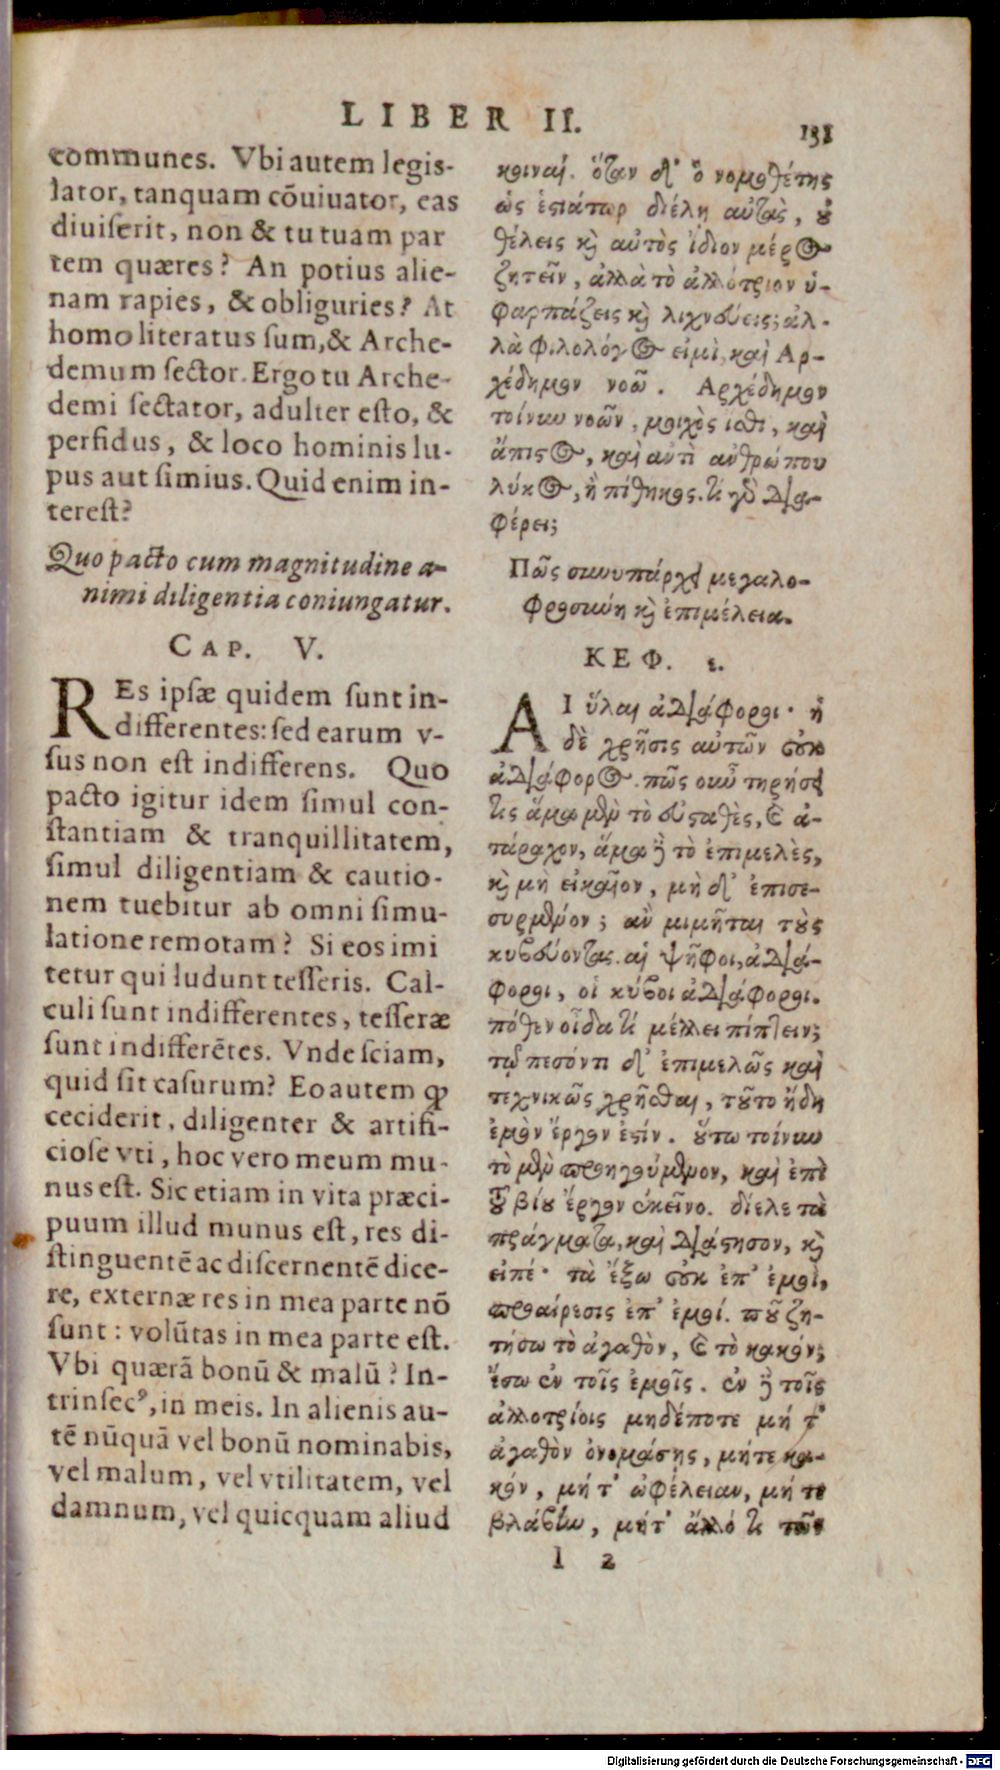 LIBER II.
131
communes. Vbi autem legis-
lator, tanquam cōuiuator, eas
diuiserit, non & tu tuam par
tem quæres? An potius alie-
nam rapies, & obliguries? At
homo literatus sum, & Arche-
demum sector. Ergo tu Arche-
demi sectator, adulter esto, &
perfidus, & loco hominis lu-
pus aut simius. Quid enim in-
terest?
Quo pacto cum magnitudine a-
nimi diligentia coniungatur.
CAP. V.
REs ipsæ quidem sunt in-
differentes: sed earum v-
sus non est indifferens. Quo
pacto igitur idem simul con-
stantiam & tranquillitatem,
simul diligentiam & cautio-
nem tuebitur ab omni simu-
latione remotam? Si eos imi
tetur qui ludunt tesseris. Cal-
culi sunt indifferentes, tesseræ
sunt indifferētes. Vnde sciam,
quid sit casurum? Eo autem ꝙ
ceciderit, diligenter & artifi-
ciose vti, hoc vero meum mu-
nus est. Sic etiam in vita præci-
puum illud munus est, res di-
stinguentē ac discernentē dice-
re, externæ res in mea parte nō
sunt: volūtas in mea parte est.
Vbi quærā bonū & malū? In-
trinsecꝰ, in meis. In alienis au-
tē nūquā vel bonū nominabis,
vel malum, vel vtilitatem, vel
damnum, vel quicquam aliud
κοιναί. ὅταν δ' ὁ νομοθέτης
ὡς ἑστιάτωρ διέλῃ αὐτὰς, οὐ
θέλεις καὶ αὐτὸς ἴδιον μέρος
ζητεῖν, ἀλλὰ τὸ ἀλλότριον ὑ-
φαρπάζεις καὶ λιχνεύεις; ἀλ-
λὰ φιλολόγος εἰμὶ, καὶ Αρ-
χέδημον νοῶ. Αρχέδημον
τοίνυν νοῶν, μοιχὸς ἴσθι, καὶ
ἄπιστος, καὶ αντὶ ανθρώπου
λύκος, ἢ πίθηκος. τί γὰρ δια-
φέρει;
Πῶς συνυπάρχει μεγαλο-
φροσύνη καὶ ἐπιμέλεια.
ΚΕΦ. ε.
ΑΙ ὕλαι ἀδιάφοροι· ἡ
δὲ χρῆσις αὐτῶν οὐκ
ἀδιάφορος. πῶς οὖν τηρήσει
τις ἅμα μὲν τὸ εὐσταθὲς, καὶ ἀ-
τάραχον, ἅμα δὲ τὸ ἐπιμελὲς,
καὶ μὴ εἰκαῖον, μὴ δ' ἐπισε-
συρμένον; ἂν μιμῆται τοὺς
κυβεύοντας. αἱ ψῆφοι, ἀδιά-
φοροι, οἱ κύβοι ἀδιάφοροι.
πόθεν οἶδα τί μέλλει πίπτειν;
τῷ πεσόντι δ' ἐπιμελῶς καὶ
τεχνικῶς χρῆσθαι, τοῦτο ἤδη
ἐμὸν ἔργον ἐστίν. οὕτω τοίνυν
τὸ μὲν προηγούμενον, καὶ ἐπὶ
τοῦ βίου ἔργον ἐκεῖνο. δίελε τὰ
πράγματα, καὶ διάστησον, καὶ
εἰπέ· τὰ ἔξω οὐκ ἐπ' ἐμοὶ,
προαίρεσις ἐπ' ἐμοί. ποῦ ζη-
τήσω τὸ ἀγαθὸν, καὶ τὸ κακόν;
ἔσω ἐν τοῖς ἐμοῖς. ἐν δὲ τοῖς
ἀλλοτρίοις μηδέποτε μή τ'
ἀγαθὸν ὀνομάσῃς, μήτε κα-
κόν, μή τ' ὠφέλειαν, μή τε
βλάβην, μήτ' ἄλλό τι τῶν
l 2
Digitalisierung gefördert durch die Deutsche Forschungsgemeinschaft - DFG